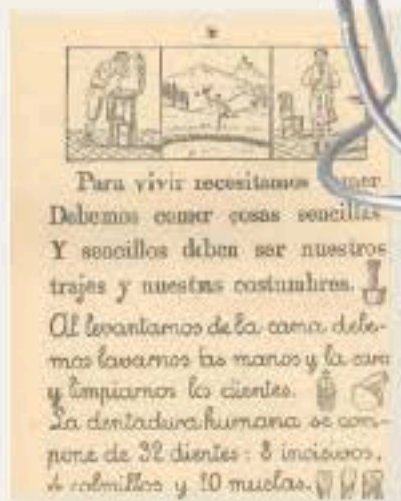 Para vivir necesitamos comer
Debemos comer cosas sencillas
Y sencillos deben ser nuestros
trajes y nuestras costumbres.
Al levantarnos de la cama debe-
mos lavarnos las manos y la cara
y limpiarnos los dientes.
La dentadura humana se com-
pone de 32 dientes: 8 incisivos,
4 colmillos y 20 muelas.